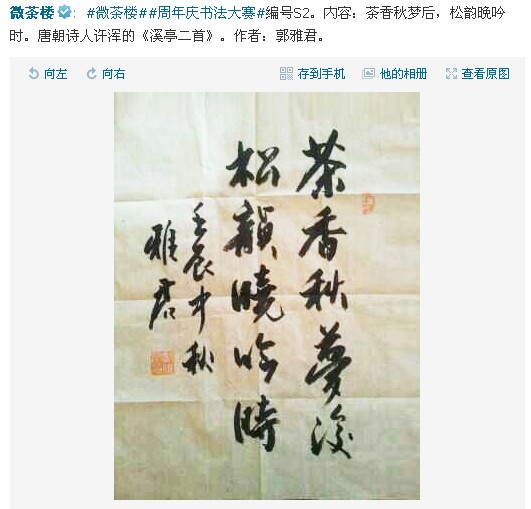 微茶楼：#微茶楼##周年庆书法大赛#编号S2。内容：茶香秋梦后，松韵晚吟
时。唐朝诗人许浑的《溪亭二首》。作者：郭雅君。
向左 向右 存到手机 他的相册 查看原图
茶香秋夢後
松韻曉吟時
壬辰中秋
雅君